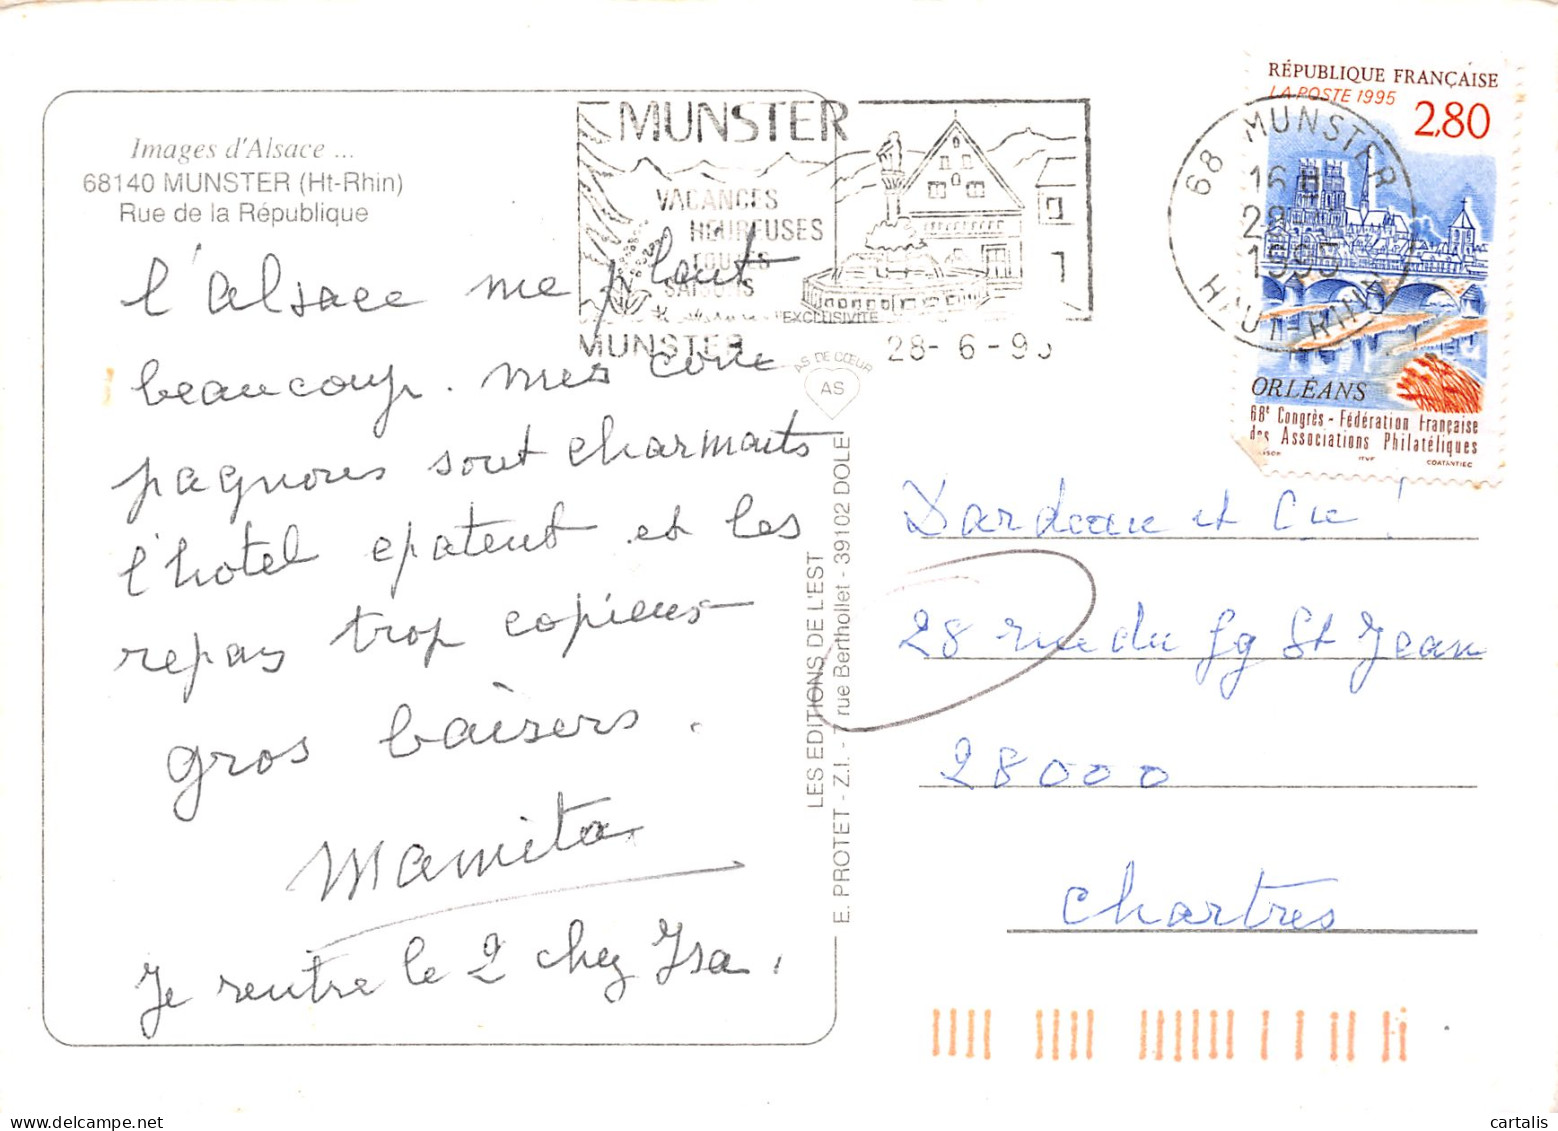 Images d'Alsace ...
68140 MUNSTER (Ht-Rhin)
Rue de la République
l'alsace me plait
beaucoup. mes com
pagnons sont charmants
l'hotel epatent et les
repas trop copieux
gros baisers.
Mamita
Je rentre le 2 chez Isa.
MUNSTER
VACANCES
HEUREUSES
TOUTES
SAISONS
EXCLUSIVITÉ
MUNSTER 28-6-95
AS DE CŒUR
AS
LES EDITIONS DE L'EST
E. PROTET - Z.I. - 7 rue Berthollet - 39102 DOLE
68 MUNSTER
16 H
28
1995
HAUT-RHIN
RÉPUBLIQUE FRANÇAISE
LA POSTE 1995
2,80
ORLÉANS
68e Congrès - Fédération Française
des Associations Philatéliques
ITVF COATANTIEC
Dardeau et Cie !
28 rue du fg St Jean
28000
Chartres
cartalis